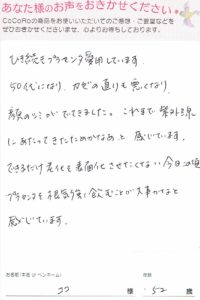 あなた様のお声をおきかせください
CoCoRoの商品をお使いいただいてのご感想・ご要望などを
ぜひおきかせくださいませ。心よりお待ちしております。
ひき続きプラセンタ愛用しています。
50代になり、カゼの直りも悪くなり、
顔のシミがでてきました。これまで紫外線
にあたってきたためかなあと感じています。
できるだけ老化を表面化させたくない今日この頃
プラセンタを根気強く飲むことが大事かなと
感じています。
お名前(本名 or ペンネーム)
年齢
様
52歳